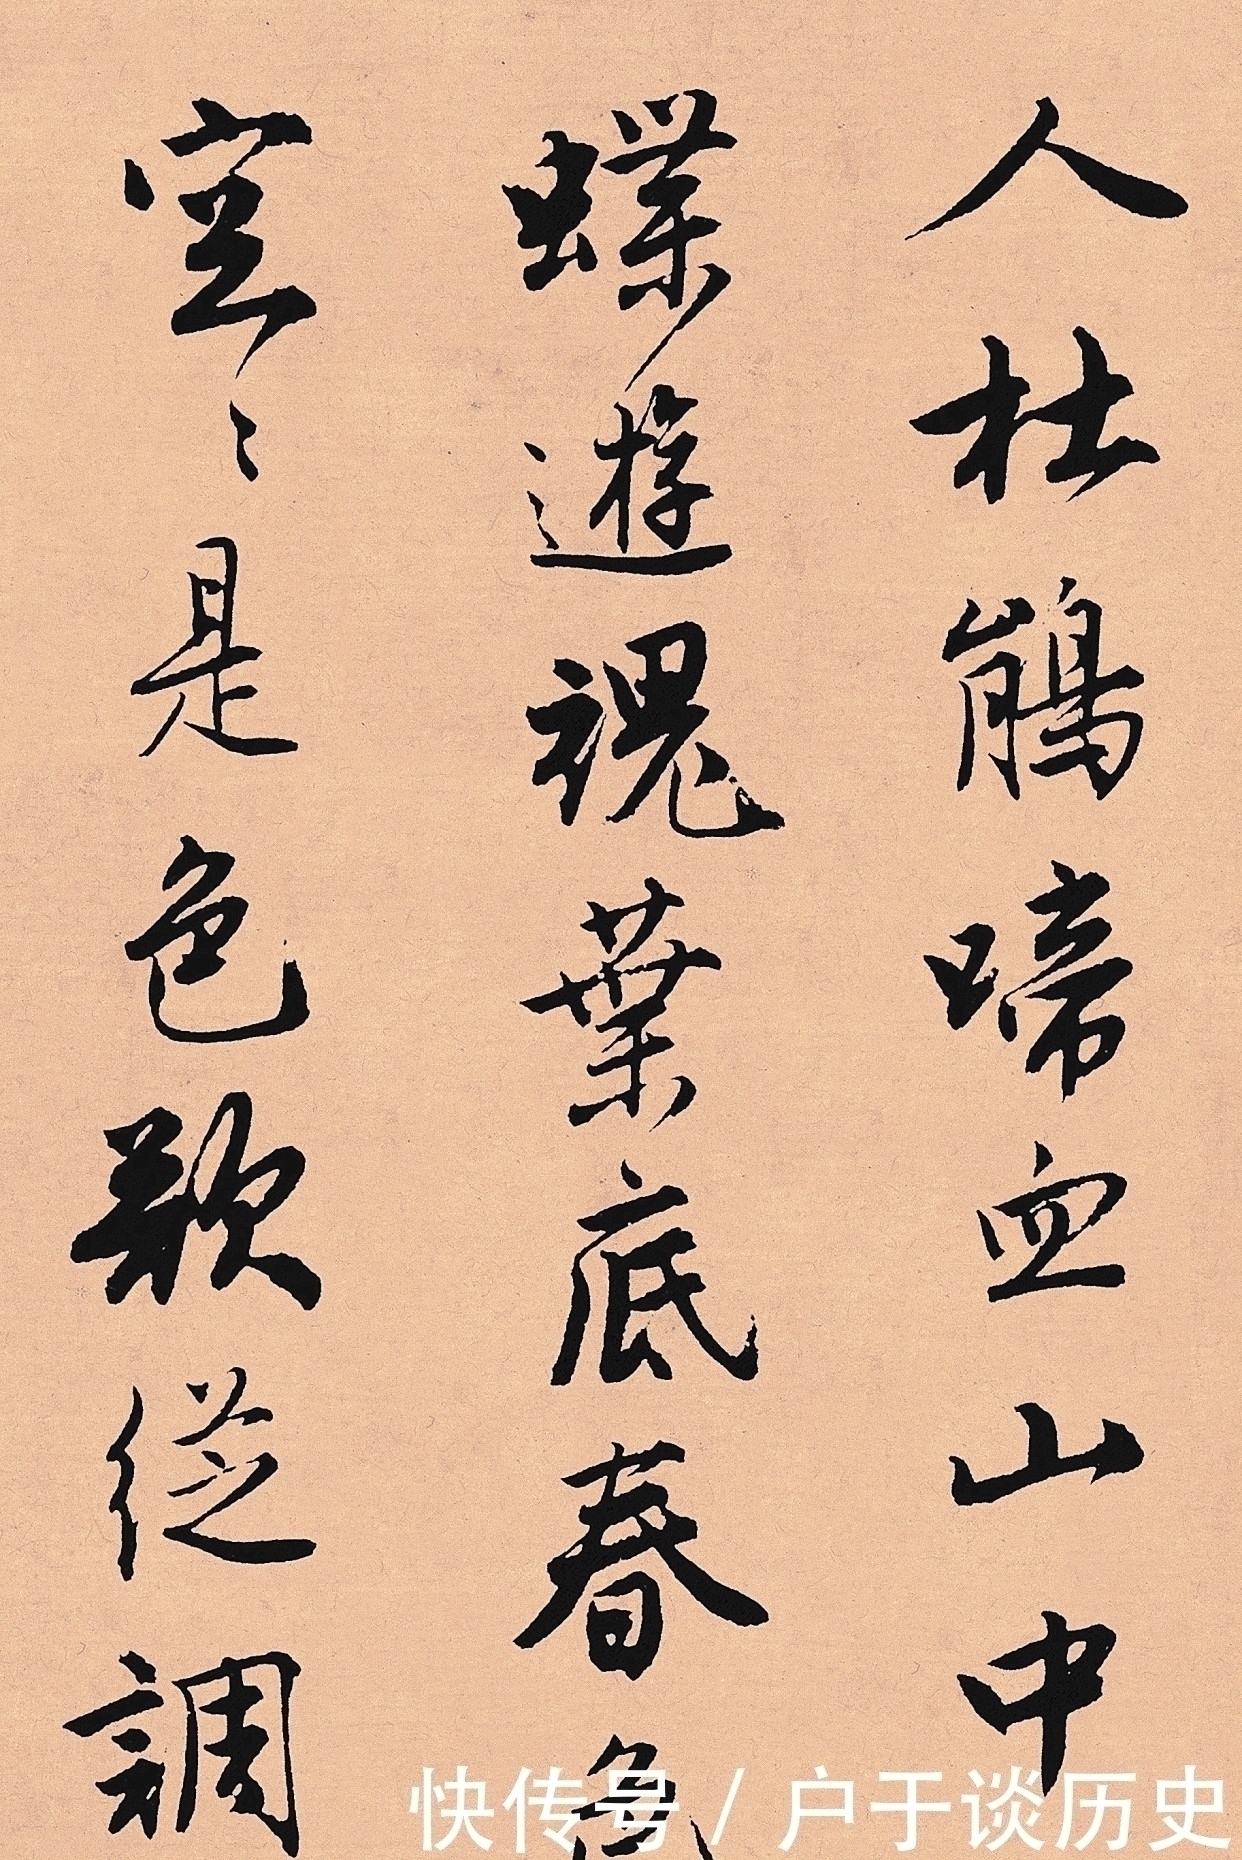 人杜鵑啼血山中
蝶遊魂葉底春色
空〻是色歌從調
快传号 / 户于谈历史